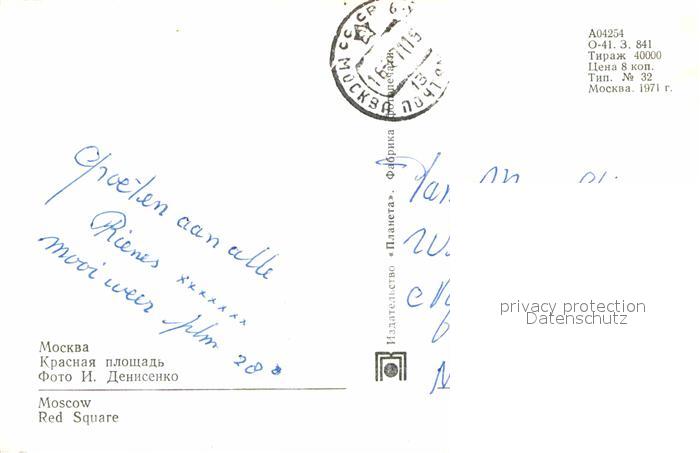 СССР
МОСКВА ПОЧТА
А04254
О-41. З. 841
Тираж 40000
Цена 8 коп.
Тип. № 32
Москва. 1971 г.
Groeten aan alle
Rienes xxxxxxx
mooi weer plm 28°
Издательство «Планета». Фабрика фотопечати
privacy protection
Datenschutz
Москва
Красная площадь
Фото И. Денисенко
Moscow
Red Square